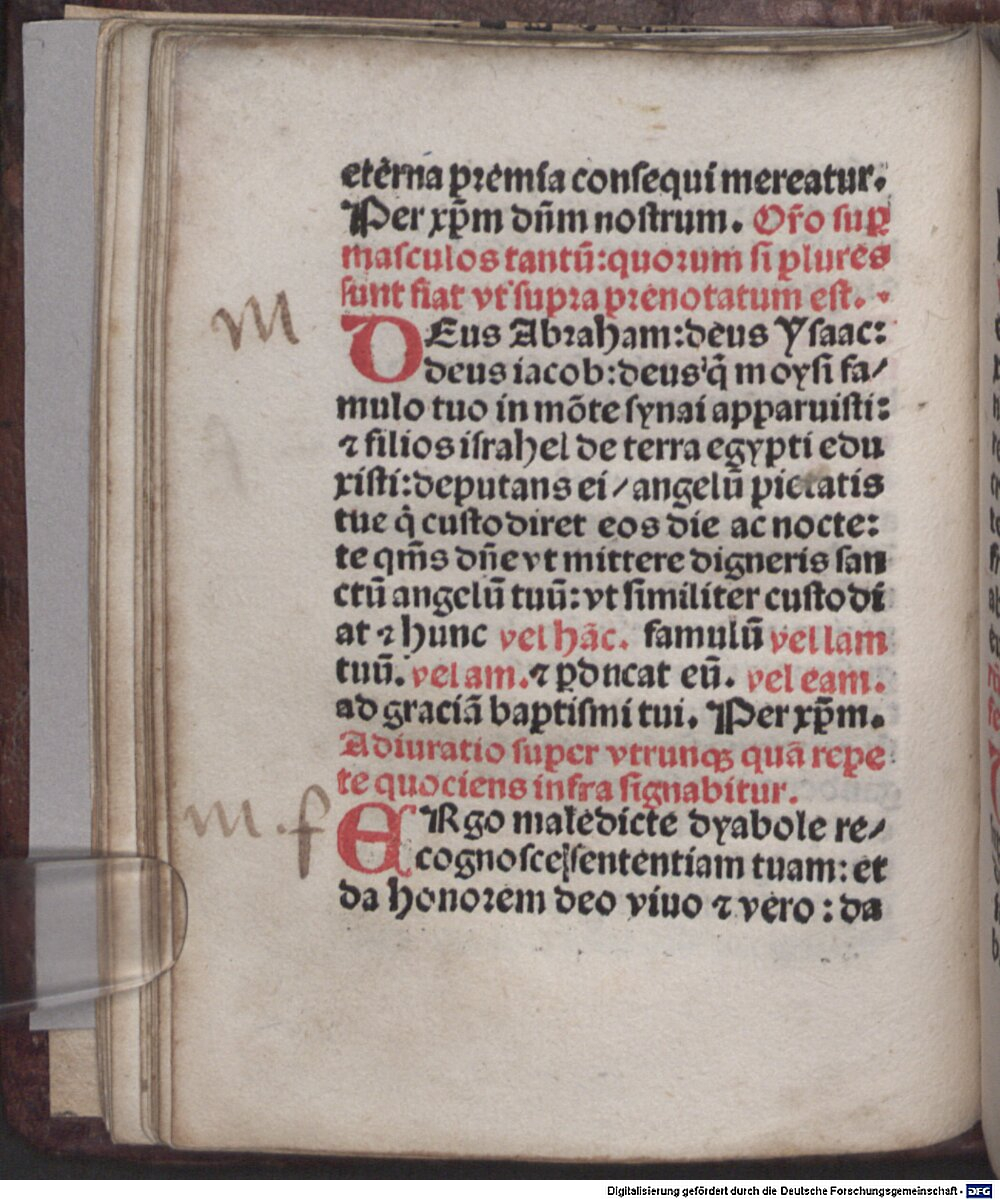 eterna premia consequi mereatur.
Per xp̄m dn̄m nostrum. Or̄o sup̲
masculos tantū: quorum si plures
sunt fiat vt supra prenotatum est.
m
DEus Abraham: deus Ysaac:
deus iacob: deus q̄ moysi fa/
mulo tuo in mōte synai apparuisti:
⁊ filios israhel de terra egypti edu
xisti: deputans ei / angelū pietatis
tue q̇ custodiret eos die ac nocte:
te qm̄s dn̄e vt mittere digneris san
ctū angelū tuū: vt similiter custodi
at ⁊ hunc vel hāc. famulū vel lam
tuū. vel am. ⁊ ꝑducat eū. vel eam.
ad graciā baptismi tui. Per xp̄m.
Adiuratio super vtrunqꝫ quā repe
te quociens infra signabitur.
m. f
ERgo maledicte dyabole re/
cognosce sententiam tuam: et
da honorem deo viuo ⁊ vero: da
Digitalisierung gefördert durch die Deutsche Forschungsgemeinschaft - DFG